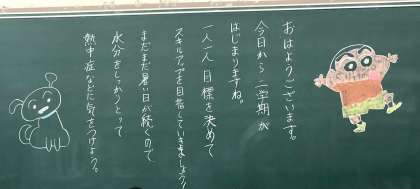 おはようございます。
今日から二学期が
はじまりますね。
一人一人目標を決めて
スキルアップを目指していきましょう!
まだまだ暑い日が続くので
水分をしっかりとって
熱中症などに気をつけよう。